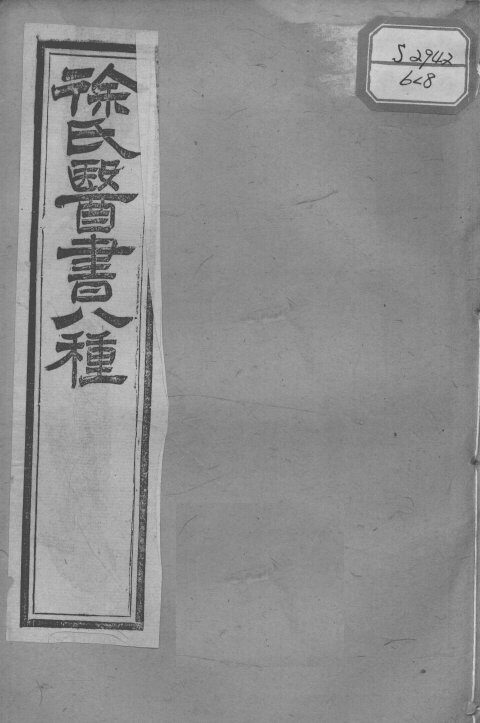 徐氏醫書八種
S 2942
628